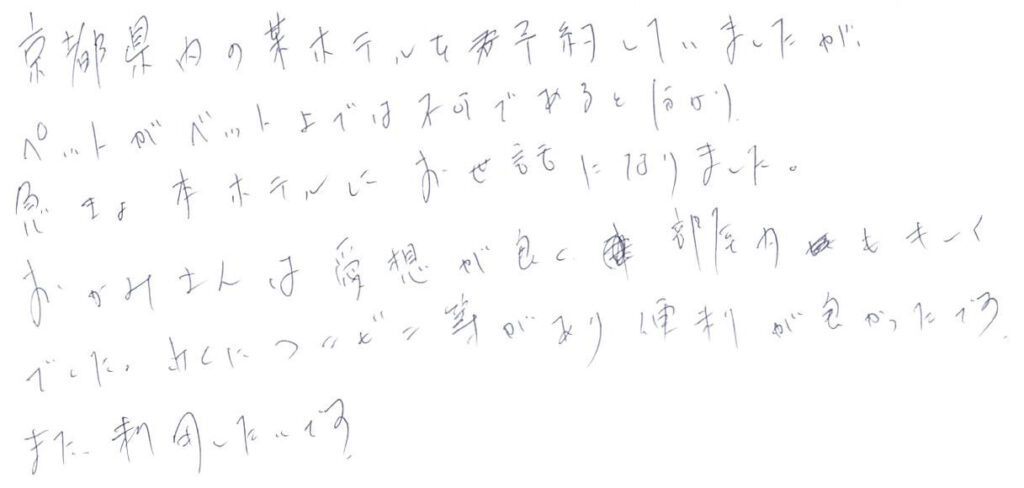 京都県内の某ホテルを予約していましたが、
ペットがベット上では不可であると分かり
急きょ本ホテルにお世話になりました。
おかみさんは愛想が良く部屋内もキレイ
でした。近くにコンビニ等があり便利が良かったです。
また利用したいです。